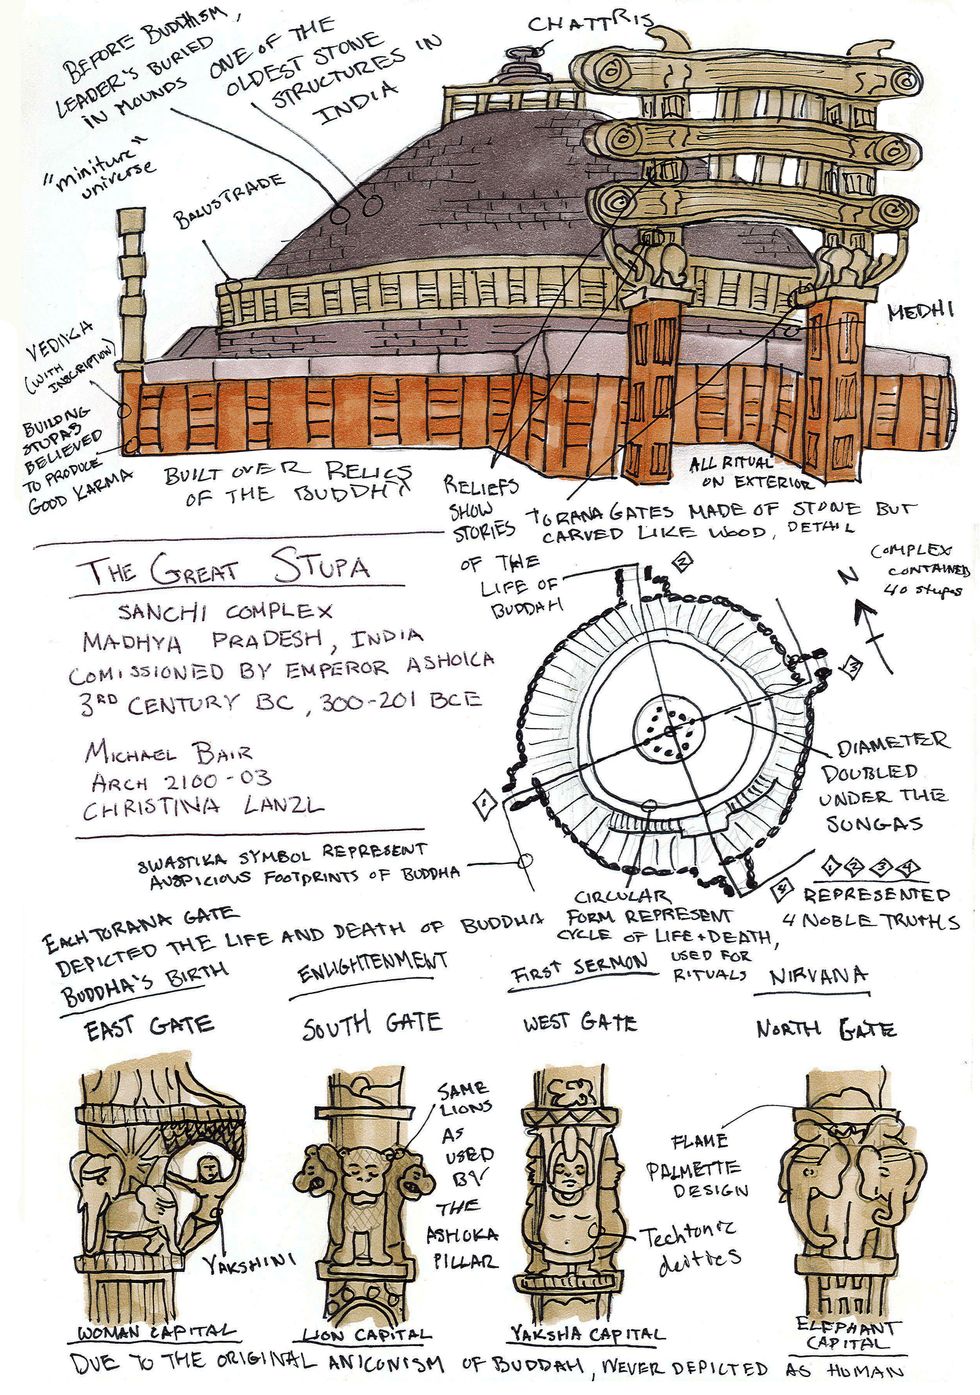 BEFORE BUDDHISM,
LEADER'S BURIED
IN MOUNDS
ONE OF THE
OLDEST STONE
STRUCTURES IN
INDIA
CHATTRIS
"miniture"
universe
BALUSTRADE
VEDIKA
(WITH
INSCRIPTION)
MEDHI
BUILDING
STUPAS
BELIEVED
TO PRODUCE
GOOD KARMA
BUILT OVER RELICS
OF THE BUDDHA
RELIEFS
SHOW
STORIES
OF THE
LIFE OF
BUDDAH
ALL RITUAL
ON EXTERIOR
TORANA GATES MADE OF STONE BUT
CARVED LIKE WOOD, DETAIL
THE GREAT STUPA
SANCHI COMPLEX
MADHYA PRADESH, INDIA
COMISSIONED BY EMPEROR ASHOKA
3RD CENTURY BC, 300-201 BCE
MICHAEL BAIR
ARCH 2100-03
CHRISTINA LANZL
COMPLEX
CONTAINED
40 stupas
N
2
3
1
4
DIAMETER
DOUBLED
UNDER THE
SUNGAS
SWASTIKA SYMBOL REPRESENT
AUSPICIOUS FOOTPRINTS OF BUDDHA
1 2 3 4
REPRESENTED
4 NOBLE TRUTHS
CIRCULAR
FORM REPRESENT
CYCLE OF LIFE + DEATH,
USED FOR
RITUALS
EACH TORANA GATE
DEPICTED THE LIFE AND DEATH OF BUDDHA
BUDDHA'S BIRTH
EAST GATE
ENLIGHTENMENT
SOUTH GATE
FIRST SERMON
WEST GATE
NIRVANA
NORTH GATE
YAKSHINI
SAME
LIONS
AS
USED
BY
THE
ASHOKA
PILLAR
FLAME
PALMETTE
DESIGN
Techtonic
deities
WOMAN CAPITAL
LION CAPITAL
YAKSHA CAPITAL
ELEPHANT
CAPITAL
DUE TO THE ORIGINAL ANICONISM OF BUDDAH, NEVER DEPICTED AS HUMAN